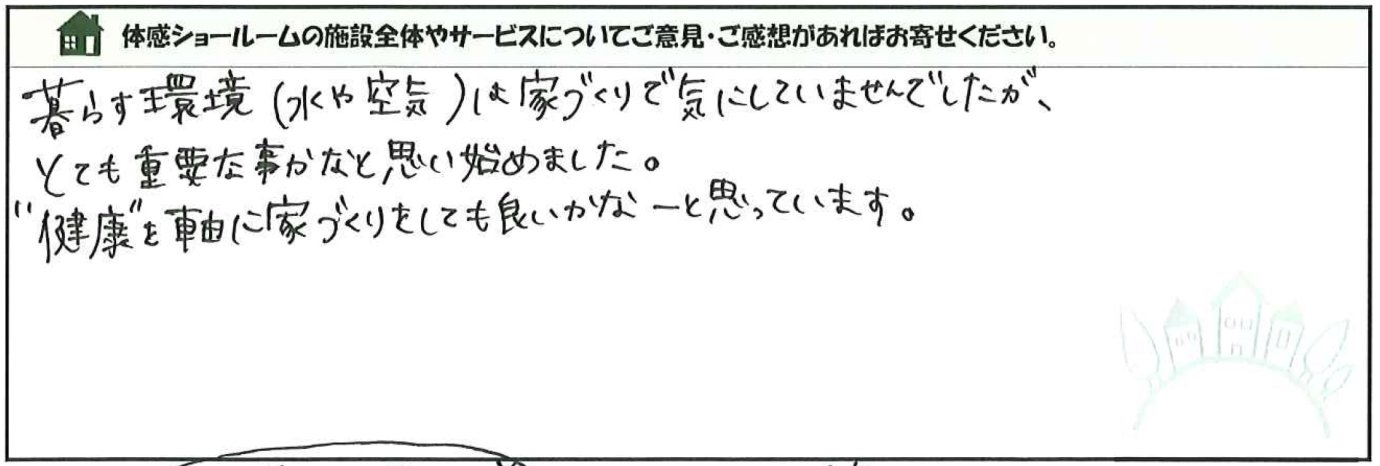 体感ショールームの施設全体やサービスについてご意見・ご感想があればお寄せください。
暮らす環境(水や空気)は家づくりで気にしていませんでしたが、
とても重要な事かなと思い始めました。
"健康"を軸に家づくりをしても良いかなーと思っています。